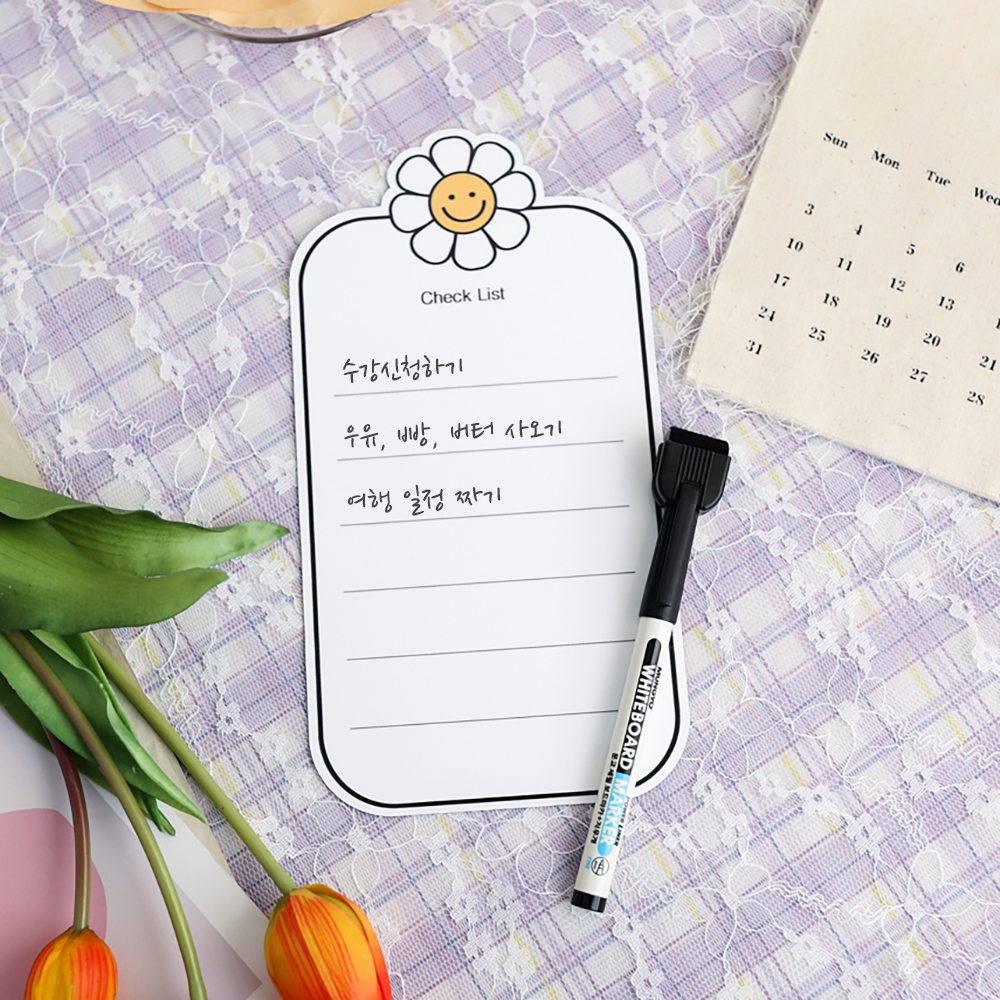 Check List
수강신청하기
우유, 빵, 버터 사오기
여행 일정 짜기
Sun Mon Tue Wed
3 4 5 6
10 11 12 13
17 18 19 20 21
24 25 26 27 28
31
MUNGYO
WHITEBOARD MARKER